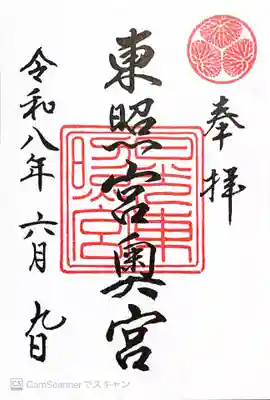 奉拝
東照宮奥宮
令和八年六月九日
CS CamScannerでスキャン